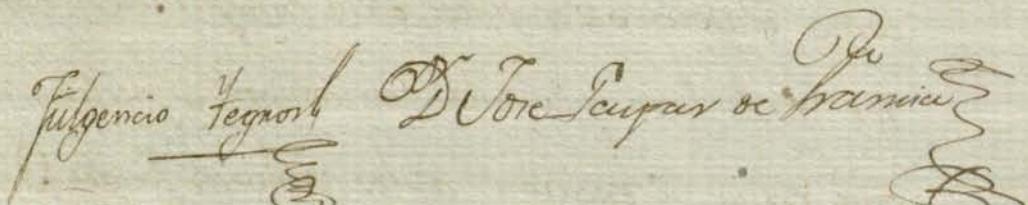 Fulgencio Yegros Dr. Jose Gaspar de Francia